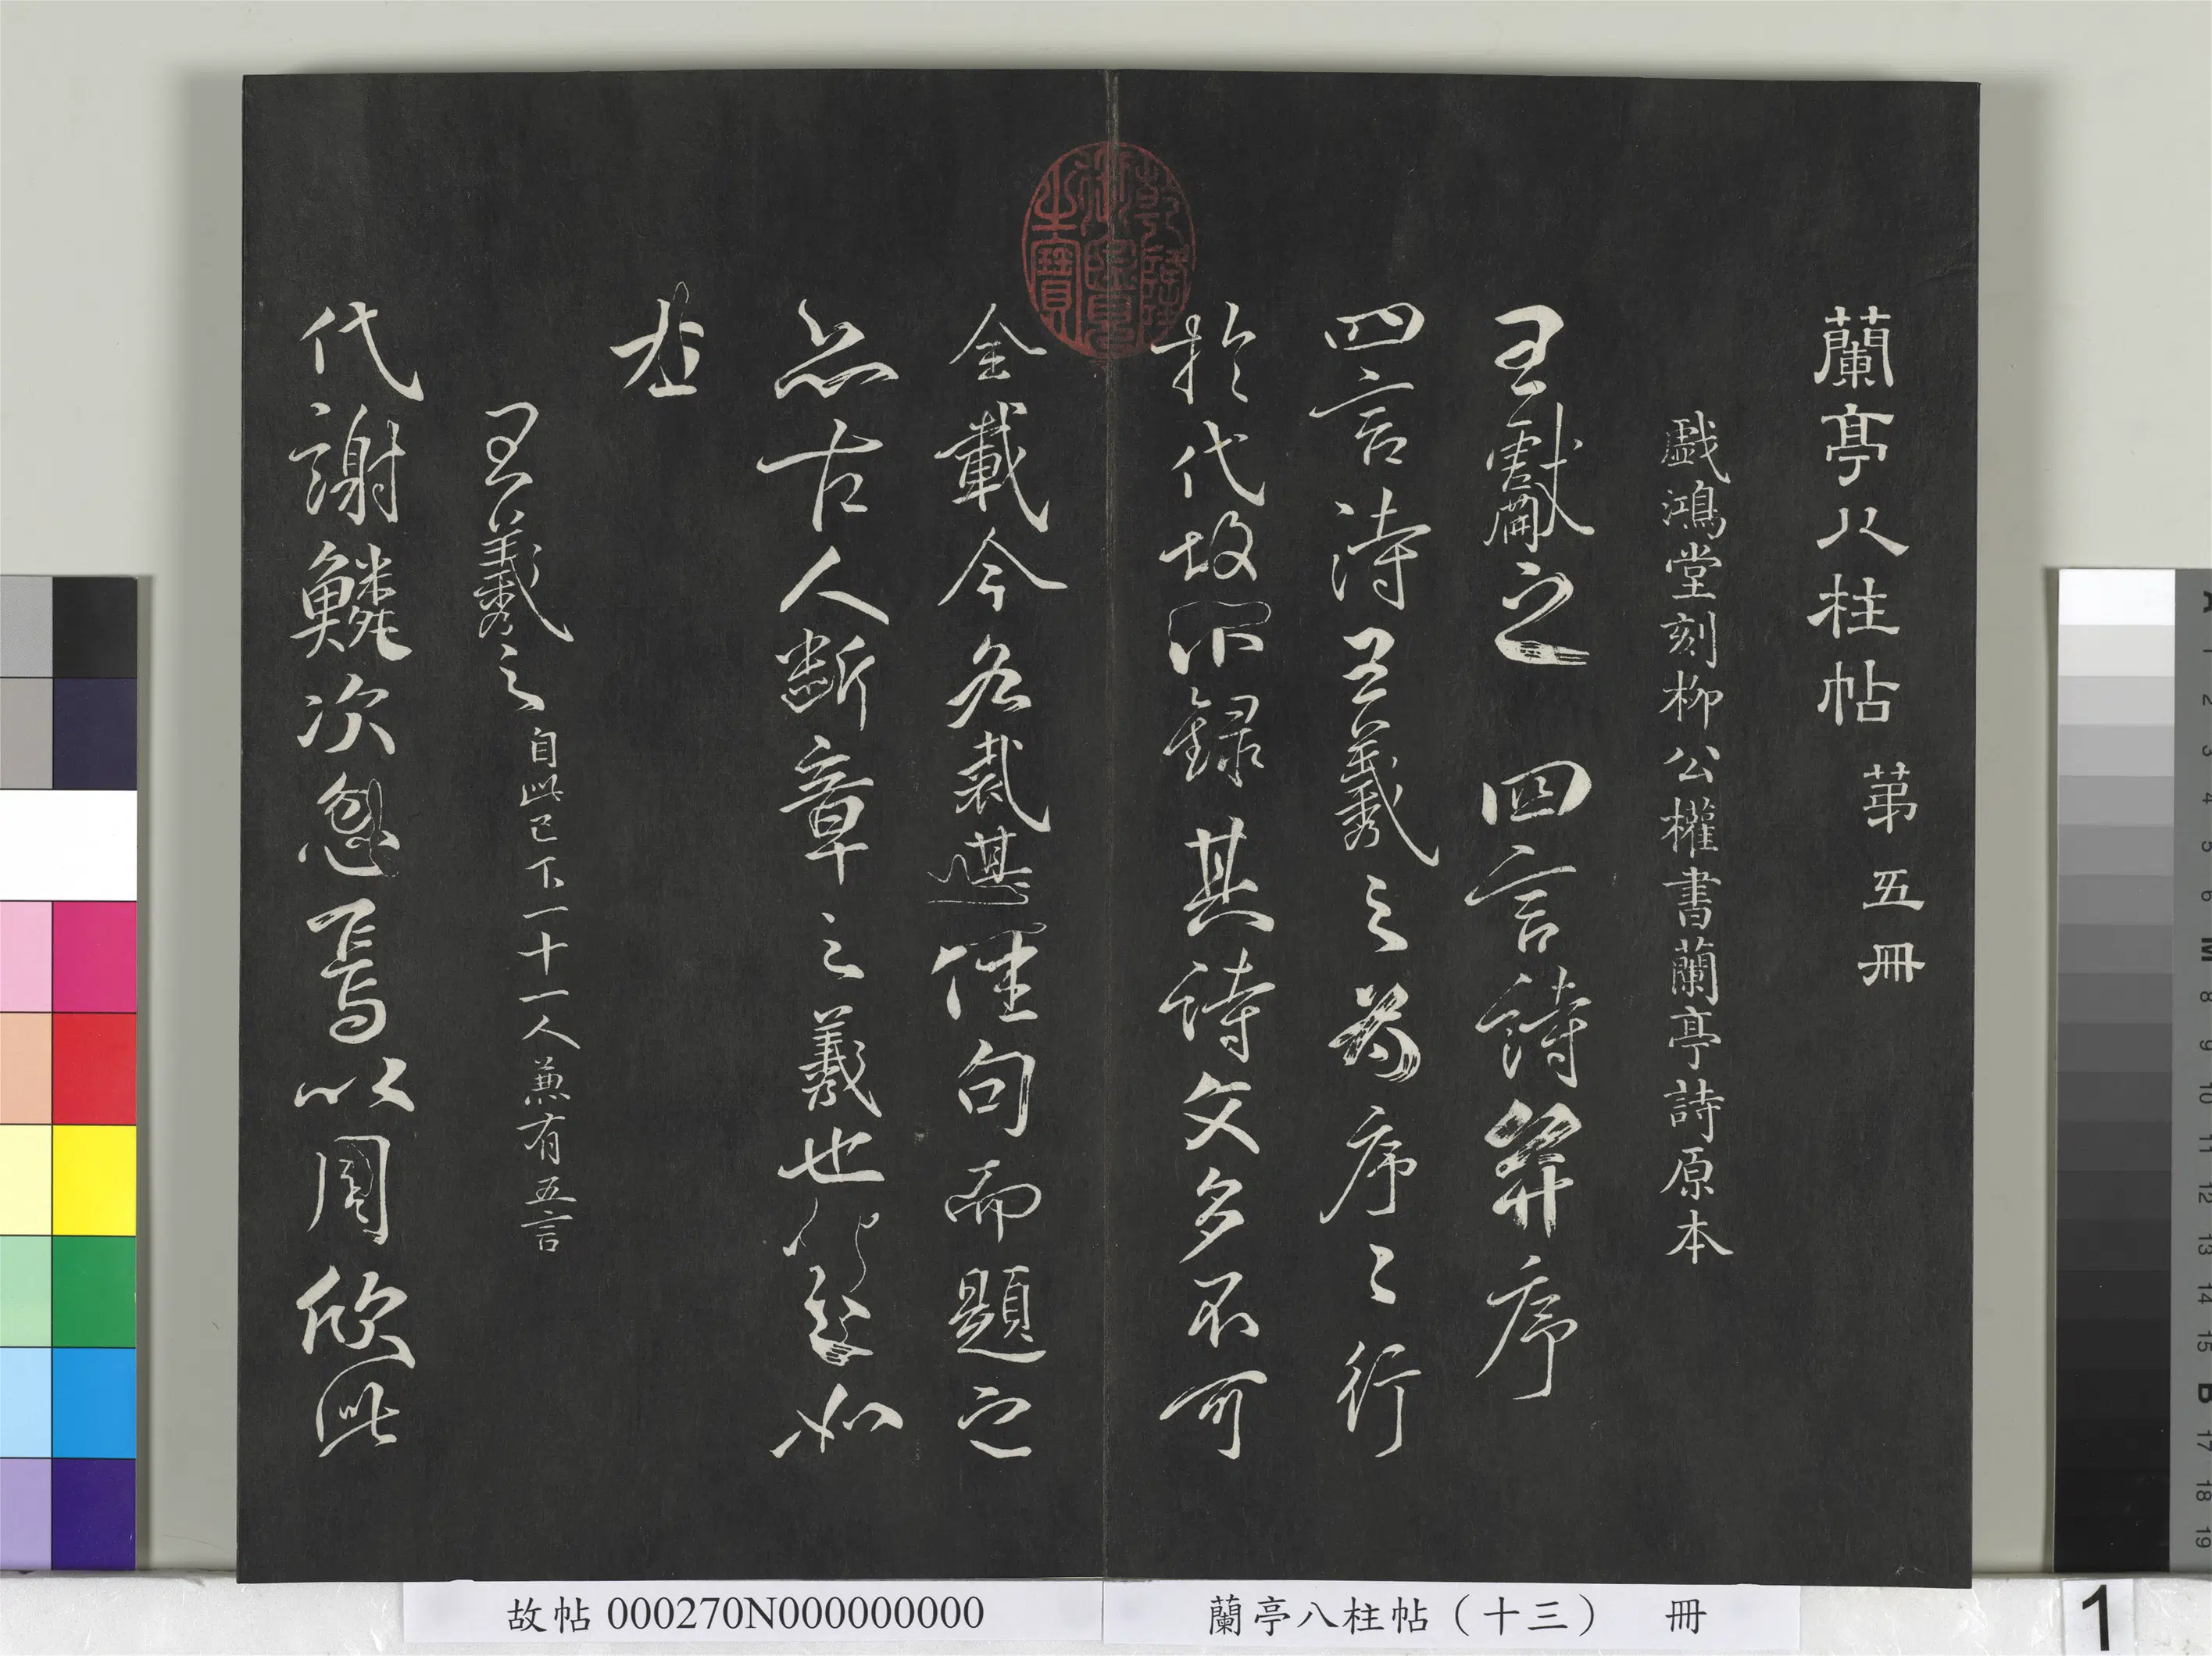 蘭亭八柱帖 第五冊
戲鴻堂刻柳公權書蘭亭詩原本
王獻之 四言詩并序
四言詩王羲之為序〻行
於代故不錄其詩文多不可
全載今各裁其佳句而題之
亦古人斷章之義也如
左
王羲之 自此已下一十一人兼有五言
代謝鱗次忽焉以周欣此
乾隆御覽之寶
蘭亭八柱帖（十三） 冊
故帖000270N000000000
1